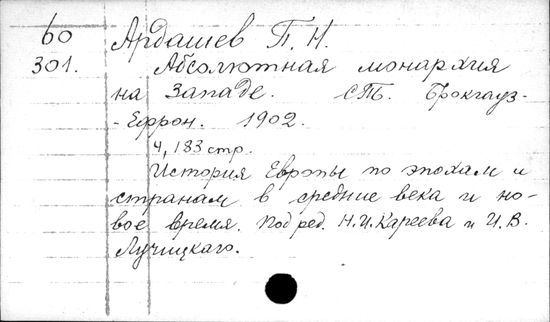 60 Ардашев П. Н.
301. Абсолютная монархия
на Западе. СПБ. Брокгауз-
-Ефрон. 1902.
4, 183 стр.
История Европы по эпохам и
странам в средние века и но-
вое время. Под ред. Н.И.Кареева и И.В.
Лучицкаго.